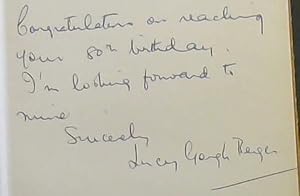 Congratulations on reaching
your 80th birthday.
I'm looking forward to
mine
Sincerely
Lucy Gough Berger